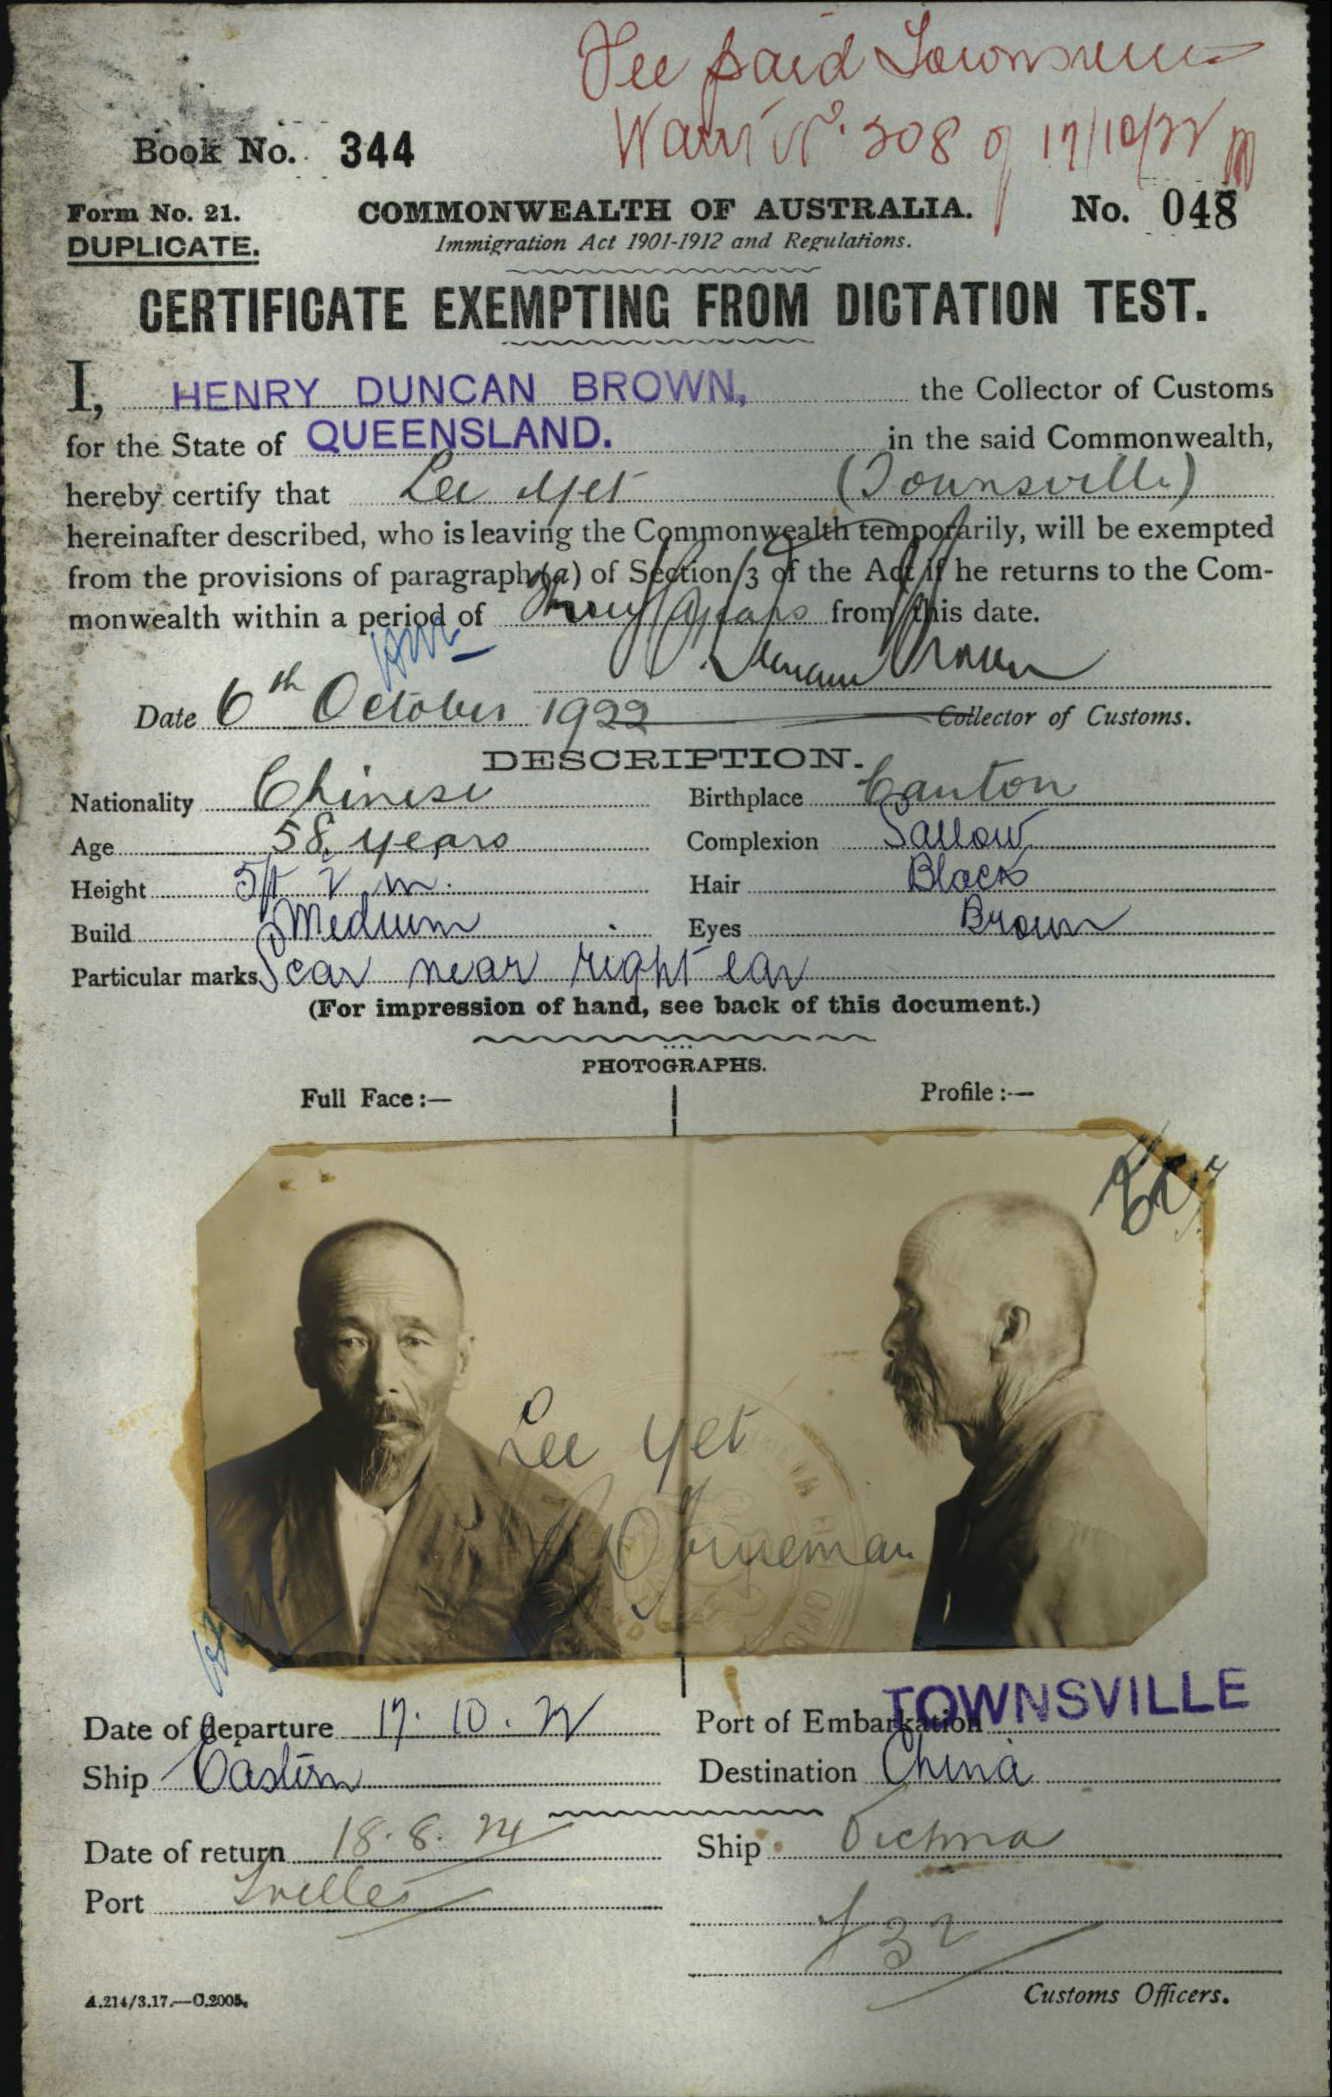 Fee paid Townsville
Warrt No. 308 of 17/10/22
Book No. 344
Form No. 21.
COMMONWEALTH OF AUSTRALIA.
No. 048
DUPLICATE.
Immigration Act 1901-1912 and Regulations.
CERTIFICATE EXEMPTING FROM DICTATION TEST.
I, HENRY DUNCAN BROWN, the Collector of Customs
for the State of QUEENSLAND. in the said Commonwealth,
hereby certify that Lee Yet (Townsville)
hereinafter described, who is leaving the Commonwealth temporarily, will be exempted
from the provisions of paragraph (a) of Section 3 of the Act if he returns to the Com-
monwealth within a period of Three years from this date.
Duncan Brown
Date 6th October 1922 Collector of Customs.
DESCRIPTION.
Nationality Chinese Birthplace Canton
Age 58 years Complexion Sallow
Height 5ft 2 in. Hair Black
Build Medium Eyes Brown
Particular marks Scar near right ear
(For impression of hand, see back of this document.)
PHOTOGRAPHS.
Full Face:— Profile:—
Lee Yet
Date of departure 17.10.22 Port of Embarkation TOWNSVILLE
Ship Eastern Destination China
Date of return 18.8.24 Ship
Port Tville
Customs Officers.
A.214/3.17.—C.2005.